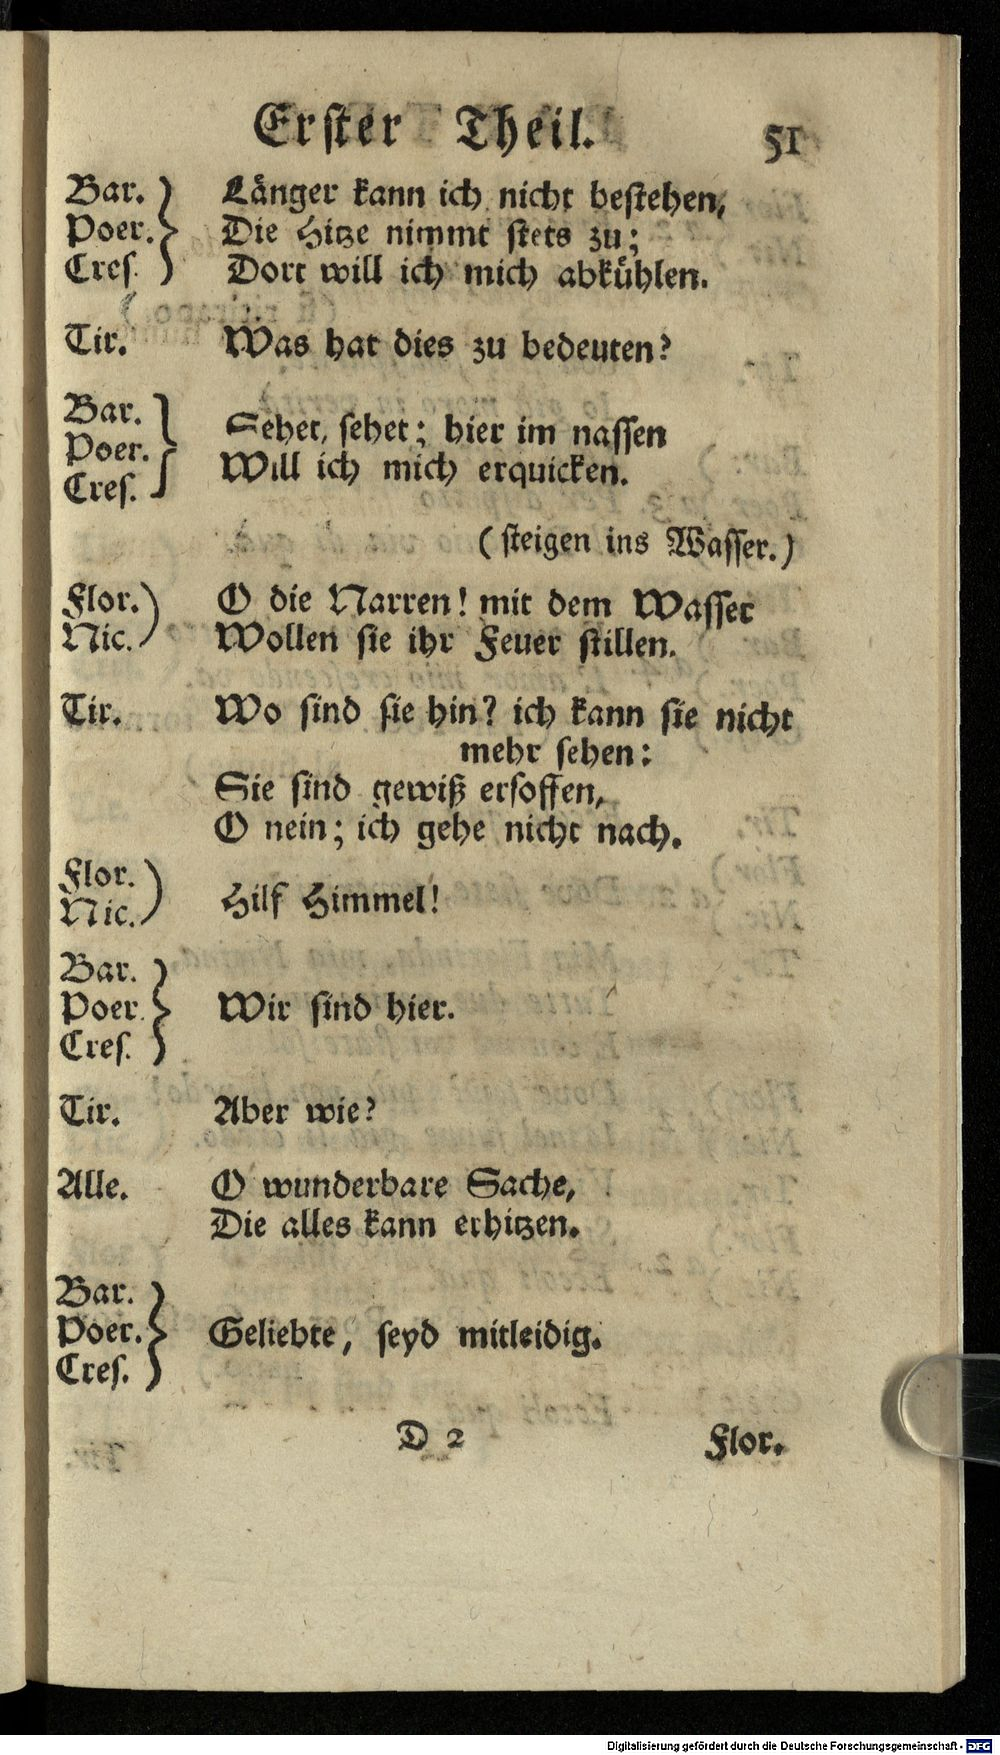 Erster Theil. 51
Bar. Länger kann ich nicht bestehen,
Poer. Die Hitze nimmt stets zu;
Cres. Dort will ich mich abkühlen.
Tir. Was hat dies zu bedeuten?
Bar.
Poer. Sehet, sehet; hier im nassen
Cres. Will ich mich erquicken.
(steigen ins Wasser.)
Flor. O die Narren! mit dem Wasser
Nic. Wollen sie ihr Feuer stillen.
Tir. Wo sind sie hin? ich kann sie nicht
mehr sehen:
Sie sind gewiß ersoffen,
O nein; ich gehe nicht nach.
Flor.
Nic. Hilf Himmel!
Bar.
Poer. Wir sind hier.
Cres.
Tir. Aber wie?
Alle. O wunderbare Sache,
Die alles kann erhitzen.
Bar.
Poer. Geliebte, seyd mitleidig.
Cres.
D 2 Flor.
Digitalisierung gefördert durch die Deutsche Forschungsgemeinschaft - DFG